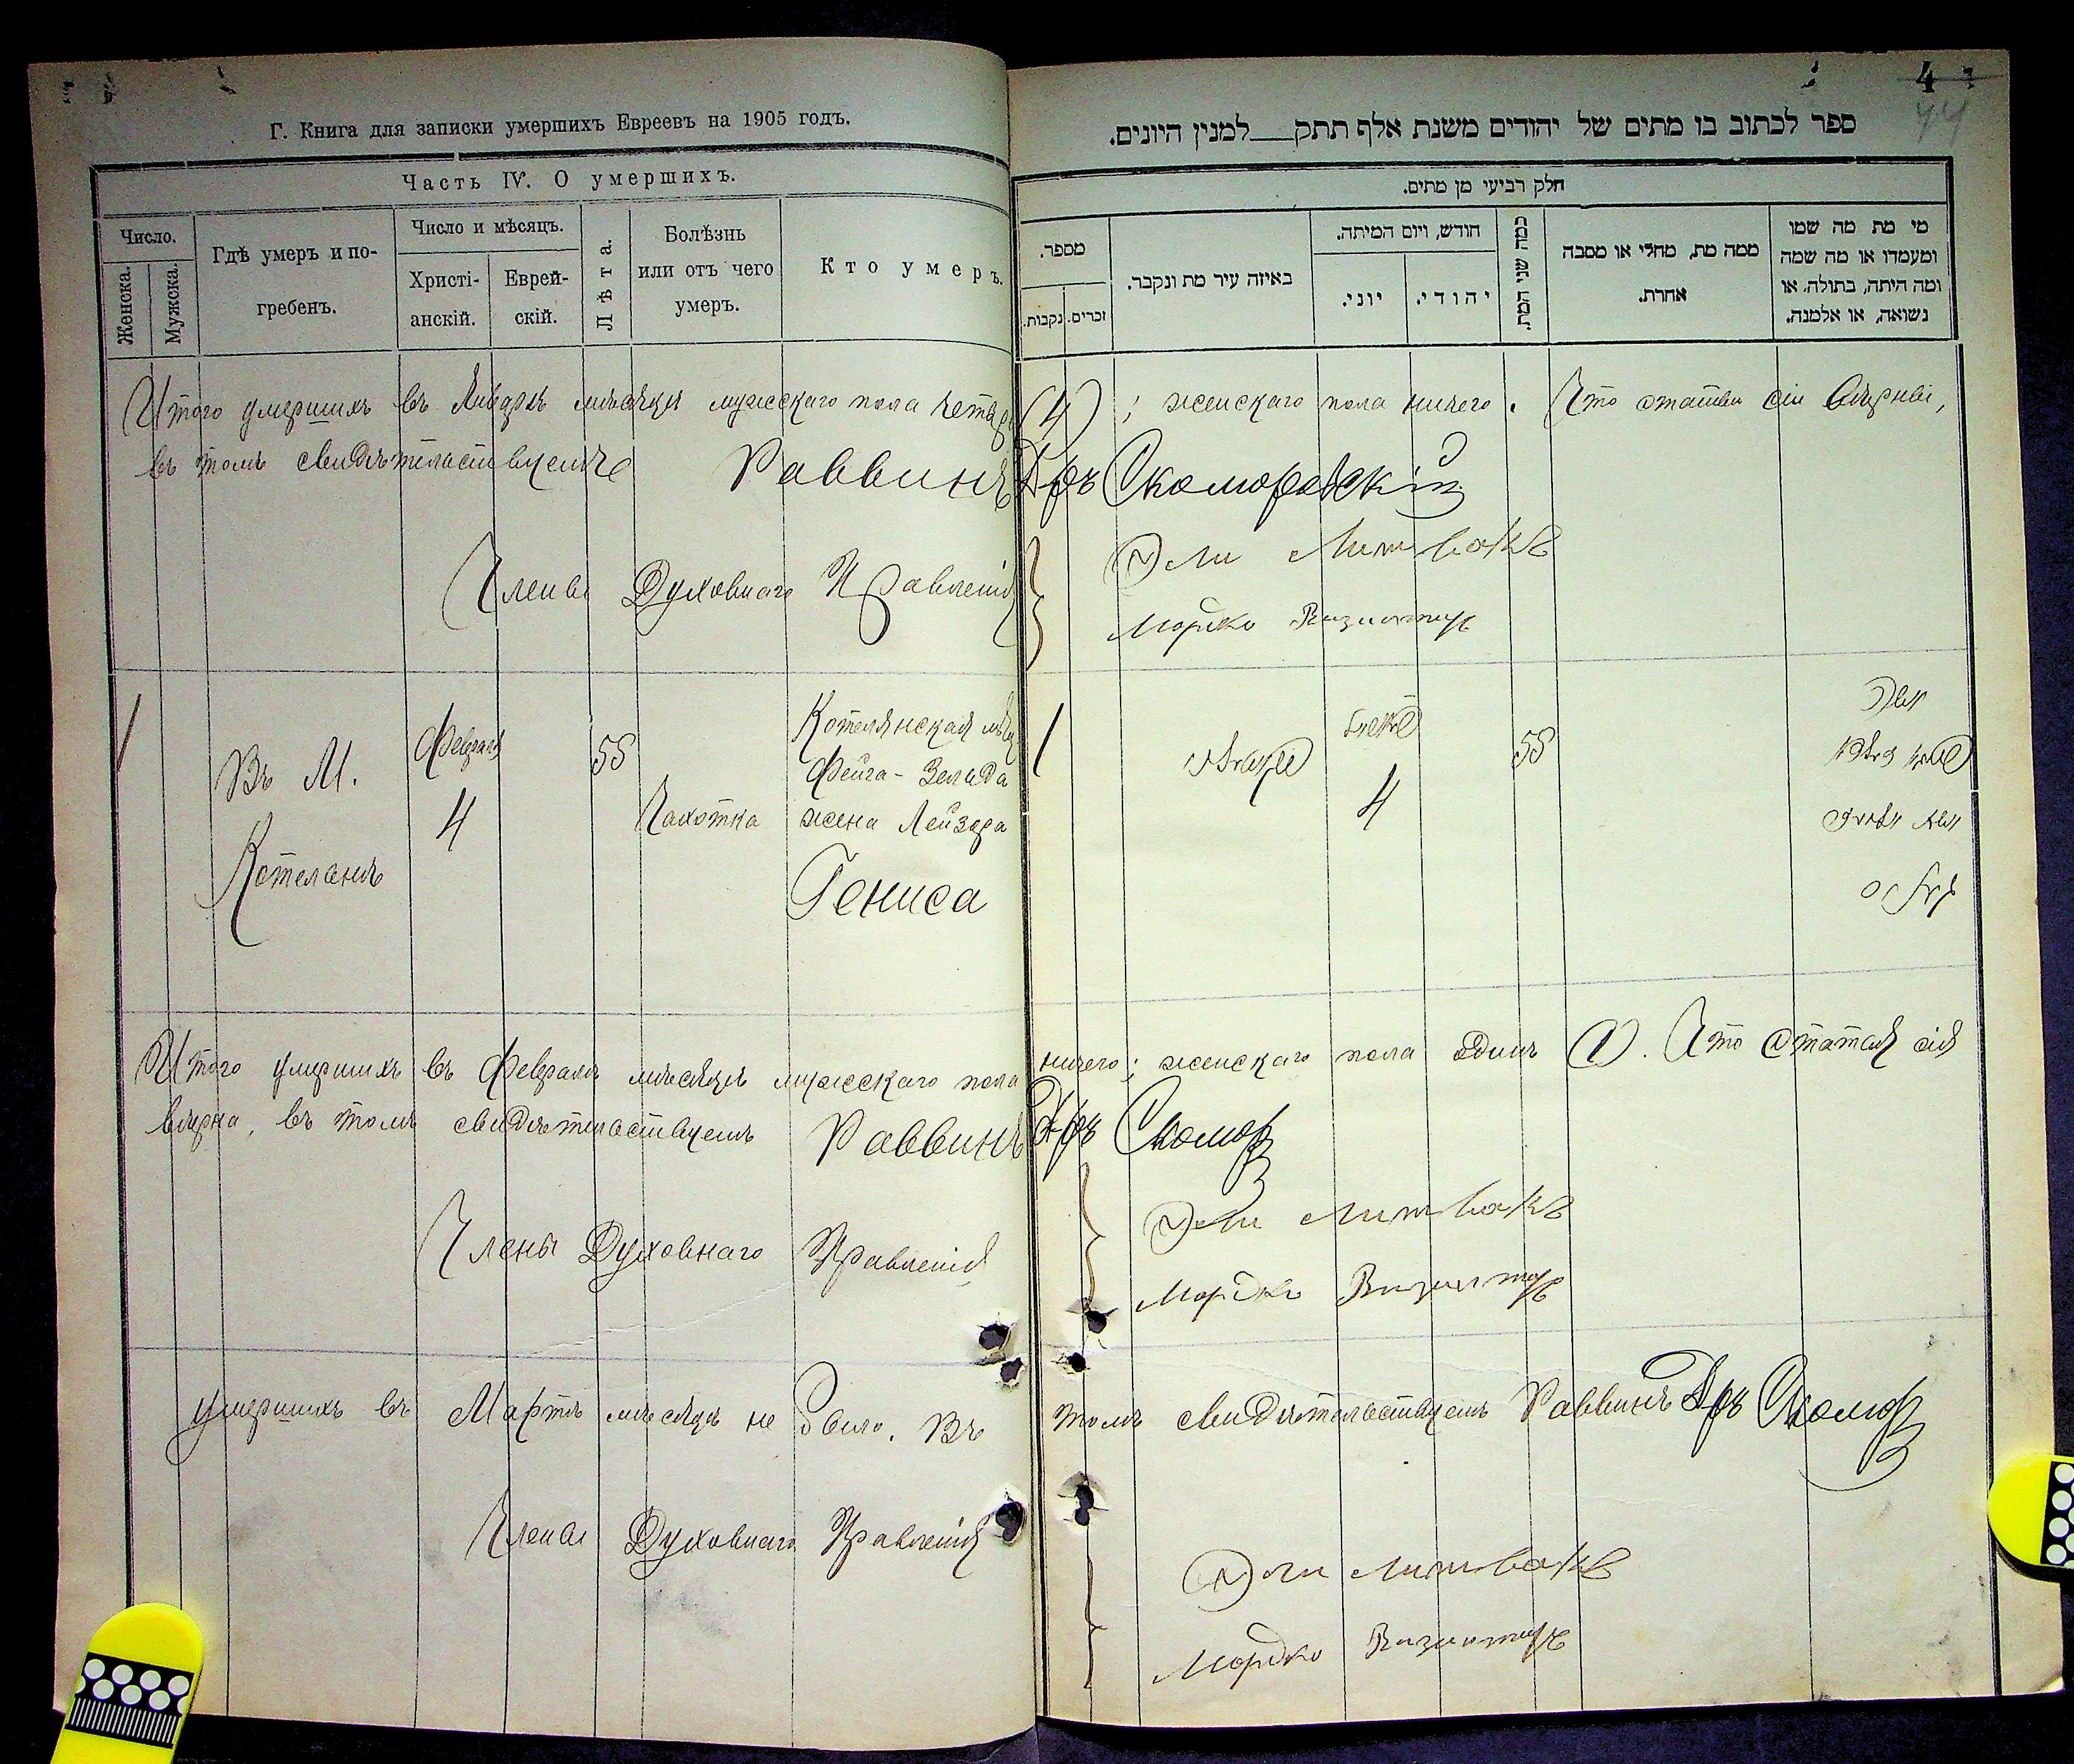 Г. Книга для записки умершихъ Евреевъ на 1905 годъ.
Часть IV. О умершихъ.
Число.
Женска.
Мужска.
Гдѣ умеръ и по-
гребенъ.
Число и мѣсяцъ.
Христі-
анскій.
Еврей-
скій.
Лѣта.
Болѣзнь
или отъ чего
умеръ.
Кто умеръ.
4
44
ספר לכתוב בו מתים של יהודים משנת אלף תתק למנין היונים.
חלק רביעי מן מתים.
מספר.
נקבות.
זכרים.
באיזה עיר מת ונקבר.
חודש, ויום המיתה.
יוני.
יהודי.
כמה שני המת.
ממה מת, מחלי או מסבה
אחרת.
מי מת מה שמו
ומעמדו או מה שמה
ומה היתה, בתולה, או
נשואה, או אלמנה.
Итого умершихъ въ Январѣ мѣсяцѣ мужскаго пола четыре (4); женскаго пола ничего. Что статьи сіи вѣрны,
въ томъ свидѣтельствуемъ Раввинъ Скоморовскій
Члены Духовнаго Правленія
Эли Литвакъ
Мордко
1
Въ М.
Котелянѣ
Февраля
4
55
Чахотка
Котелянская мѣщ
Фейга-Зельда
жена Лейзера
Гениса
1
4
55
Итого умершихъ въ Февралѣ мѣсяцѣ мужскаго пола ничего; женскаго пола одинъ (1). Что статья сія
вѣрна, въ томъ свидѣтельствуемъ Раввинъ Скомор
Члены Духовнаго Правленія
Эли Литвакъ
Мордко
Умершихъ въ Мартѣ мѣсяцѣ не было. Въ томъ свидѣтельствуемъ Раввинъ Скомор
Члены Духовнаго Правленія
Эли Литвакъ
Мордко